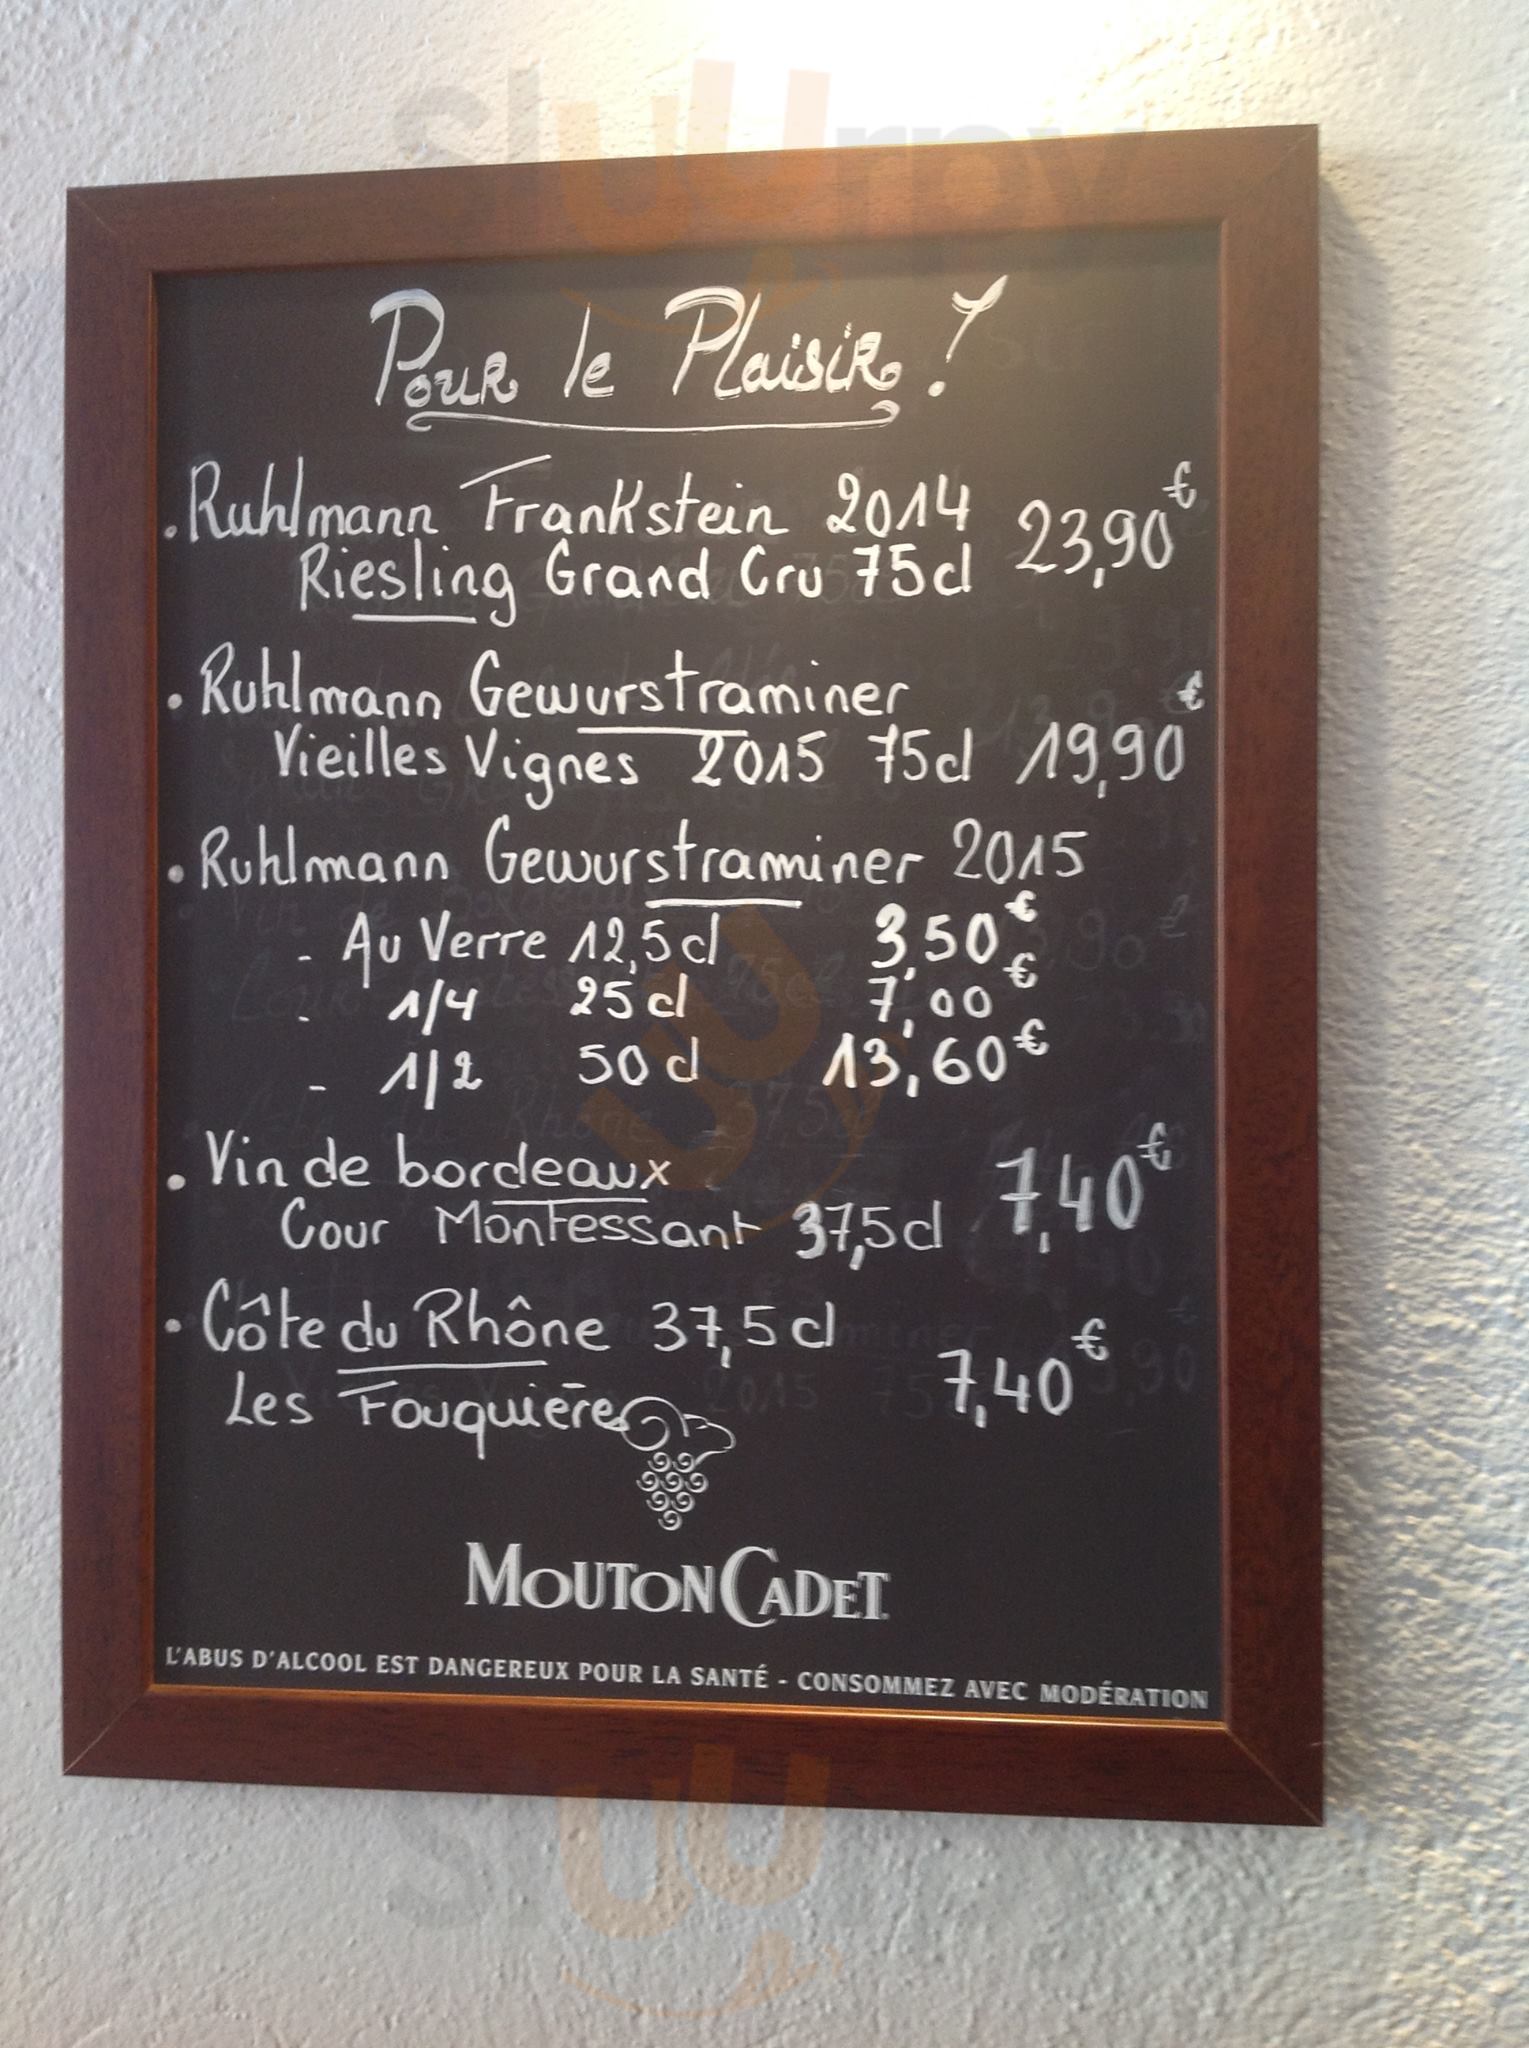 Pour le Plaisir !
. Ruhlmann Frankstein 2014 23,90€
Riesling Grand Cru 75cl
. Ruhlmann Gewurstraminer
Vieilles Vignes 2015 75cl 19,90€
. Ruhlmann Gewurstraminer 2015
- Au Verre 12,5cl 3,50€
- 1/4 25cl 7,00€
- 1/2 50cl 13,60€
. Vin de bordeaux 7,40€
Cour Montessant 37,5cl
. Côte du Rhône 37,5cl
Les Fouquières 7,40€
MOUTON CADET
L'ABUS D'ALCOOL EST DANGEREUX POUR LA SANTÉ - CONSOMMEZ AVEC MODÉRATION